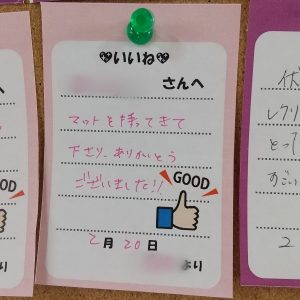 いいね
さんへ
マットを持ってきて
下さり、ありがとう
ございました!!
GOOD
2月20日
より
へ
GOOD
より
伏
レクリ
とっ
すごい
2